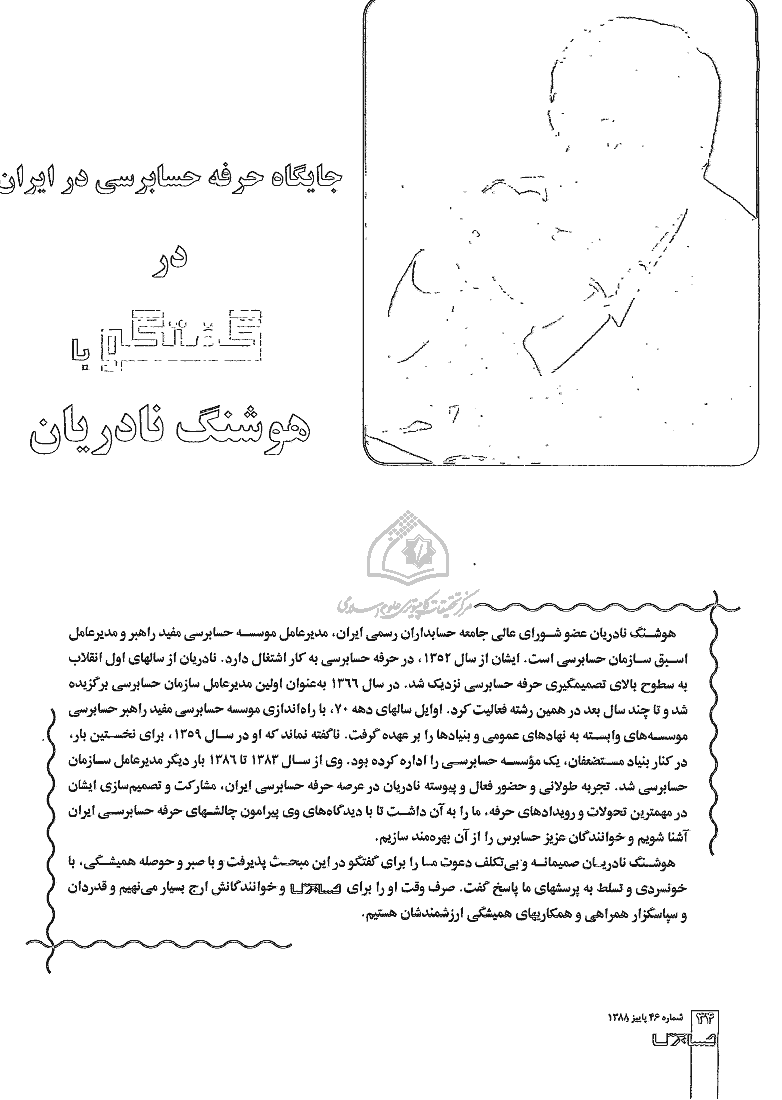 جایگاه حرفه حسابرسی در ایران
در
گفتگو با
هوشنگ نادریان
مرکز تحقیقات کامپیوتری علوم اسلامی
هوشنگ نادریان عضو شورای عالی جامعه حسابداران رسمی ایران، مدیرعامل موسسه حسابرسی مفید راهبر و مدیرعامل
اسبق سازمان حسابرسی است. ایشان از سال ۱۳۵۲، در حرفه حسابرسی به کار اشتغال دارد. نادریان از سالهای اول انقلاب
به سطوح بالای تصمیمگیری حرفه حسابرسی نزدیک شد. در سال ۱۳۶۶ به‌عنوان اولین مدیرعامل سازمان حسابرسی برگزیده
شد و تا چند سال بعد در همین رشته فعالیت کرد. اوایل سالهای دهه ۷۰، با راه‌اندازی موسسه حسابرسی مفید راهبر حسابرسی
موسسه‌های وابسته به نهادهای عمومی و بنیادها را بر عهده گرفت. ناگفته نماند که او در سال ۱۳۵۹، برای نخستین بار،
در کنار بنیاد مستضعفان، یک مؤسسه حسابرسی را اداره کرده بود. وی از سال ۱۳۸۳ تا ۱۳۸۶ بار دیگر مدیرعامل سازمان
حسابرسی شد. تجربه طولانی و حضور فعال و پیوسته نادریان در عرصه حرفه حسابرسی ایران، مشارکت و تصمیم‌سازی ایشان
در مهمترین تحولات و رویدادهای حرفه، ما را به آن داشت تا با دیدگاه‌های وی پیرامون چالشهای حرفه حسابرسی ایران
آشنا شویم و خوانندگان عزیز حسابرس را از آن بهره‌مند سازیم.
هوشنگ نادریان صمیمانه و بی‌تکلف دعوت ما را برای گفتگو در این مبحث پذیرفت و با صبر و حوصله همیشگی، با
خونسردی و تسلط به پرسشهای ما پاسخ گفت. صرف وقت او را برای حسابرس و خوانندگانش ارج بسیار می‌نهیم و قدردان
و سپاسگزار همراهی و همکاریهای همیشگی ارزشمندشان هستیم.
شماره ۴۶ پاییز ۱۳۸۸
حسابرس